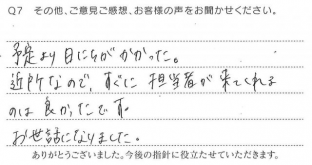 Q7 その他、ご意見ご感想、お客様の声をお聞かせください。
予定より日にちがかかった。
近所なので、すぐに担当者が来てくれる
のは良かったです
お世話になりました。
ありがとうございました。今後の指針に役立たせていただきます。